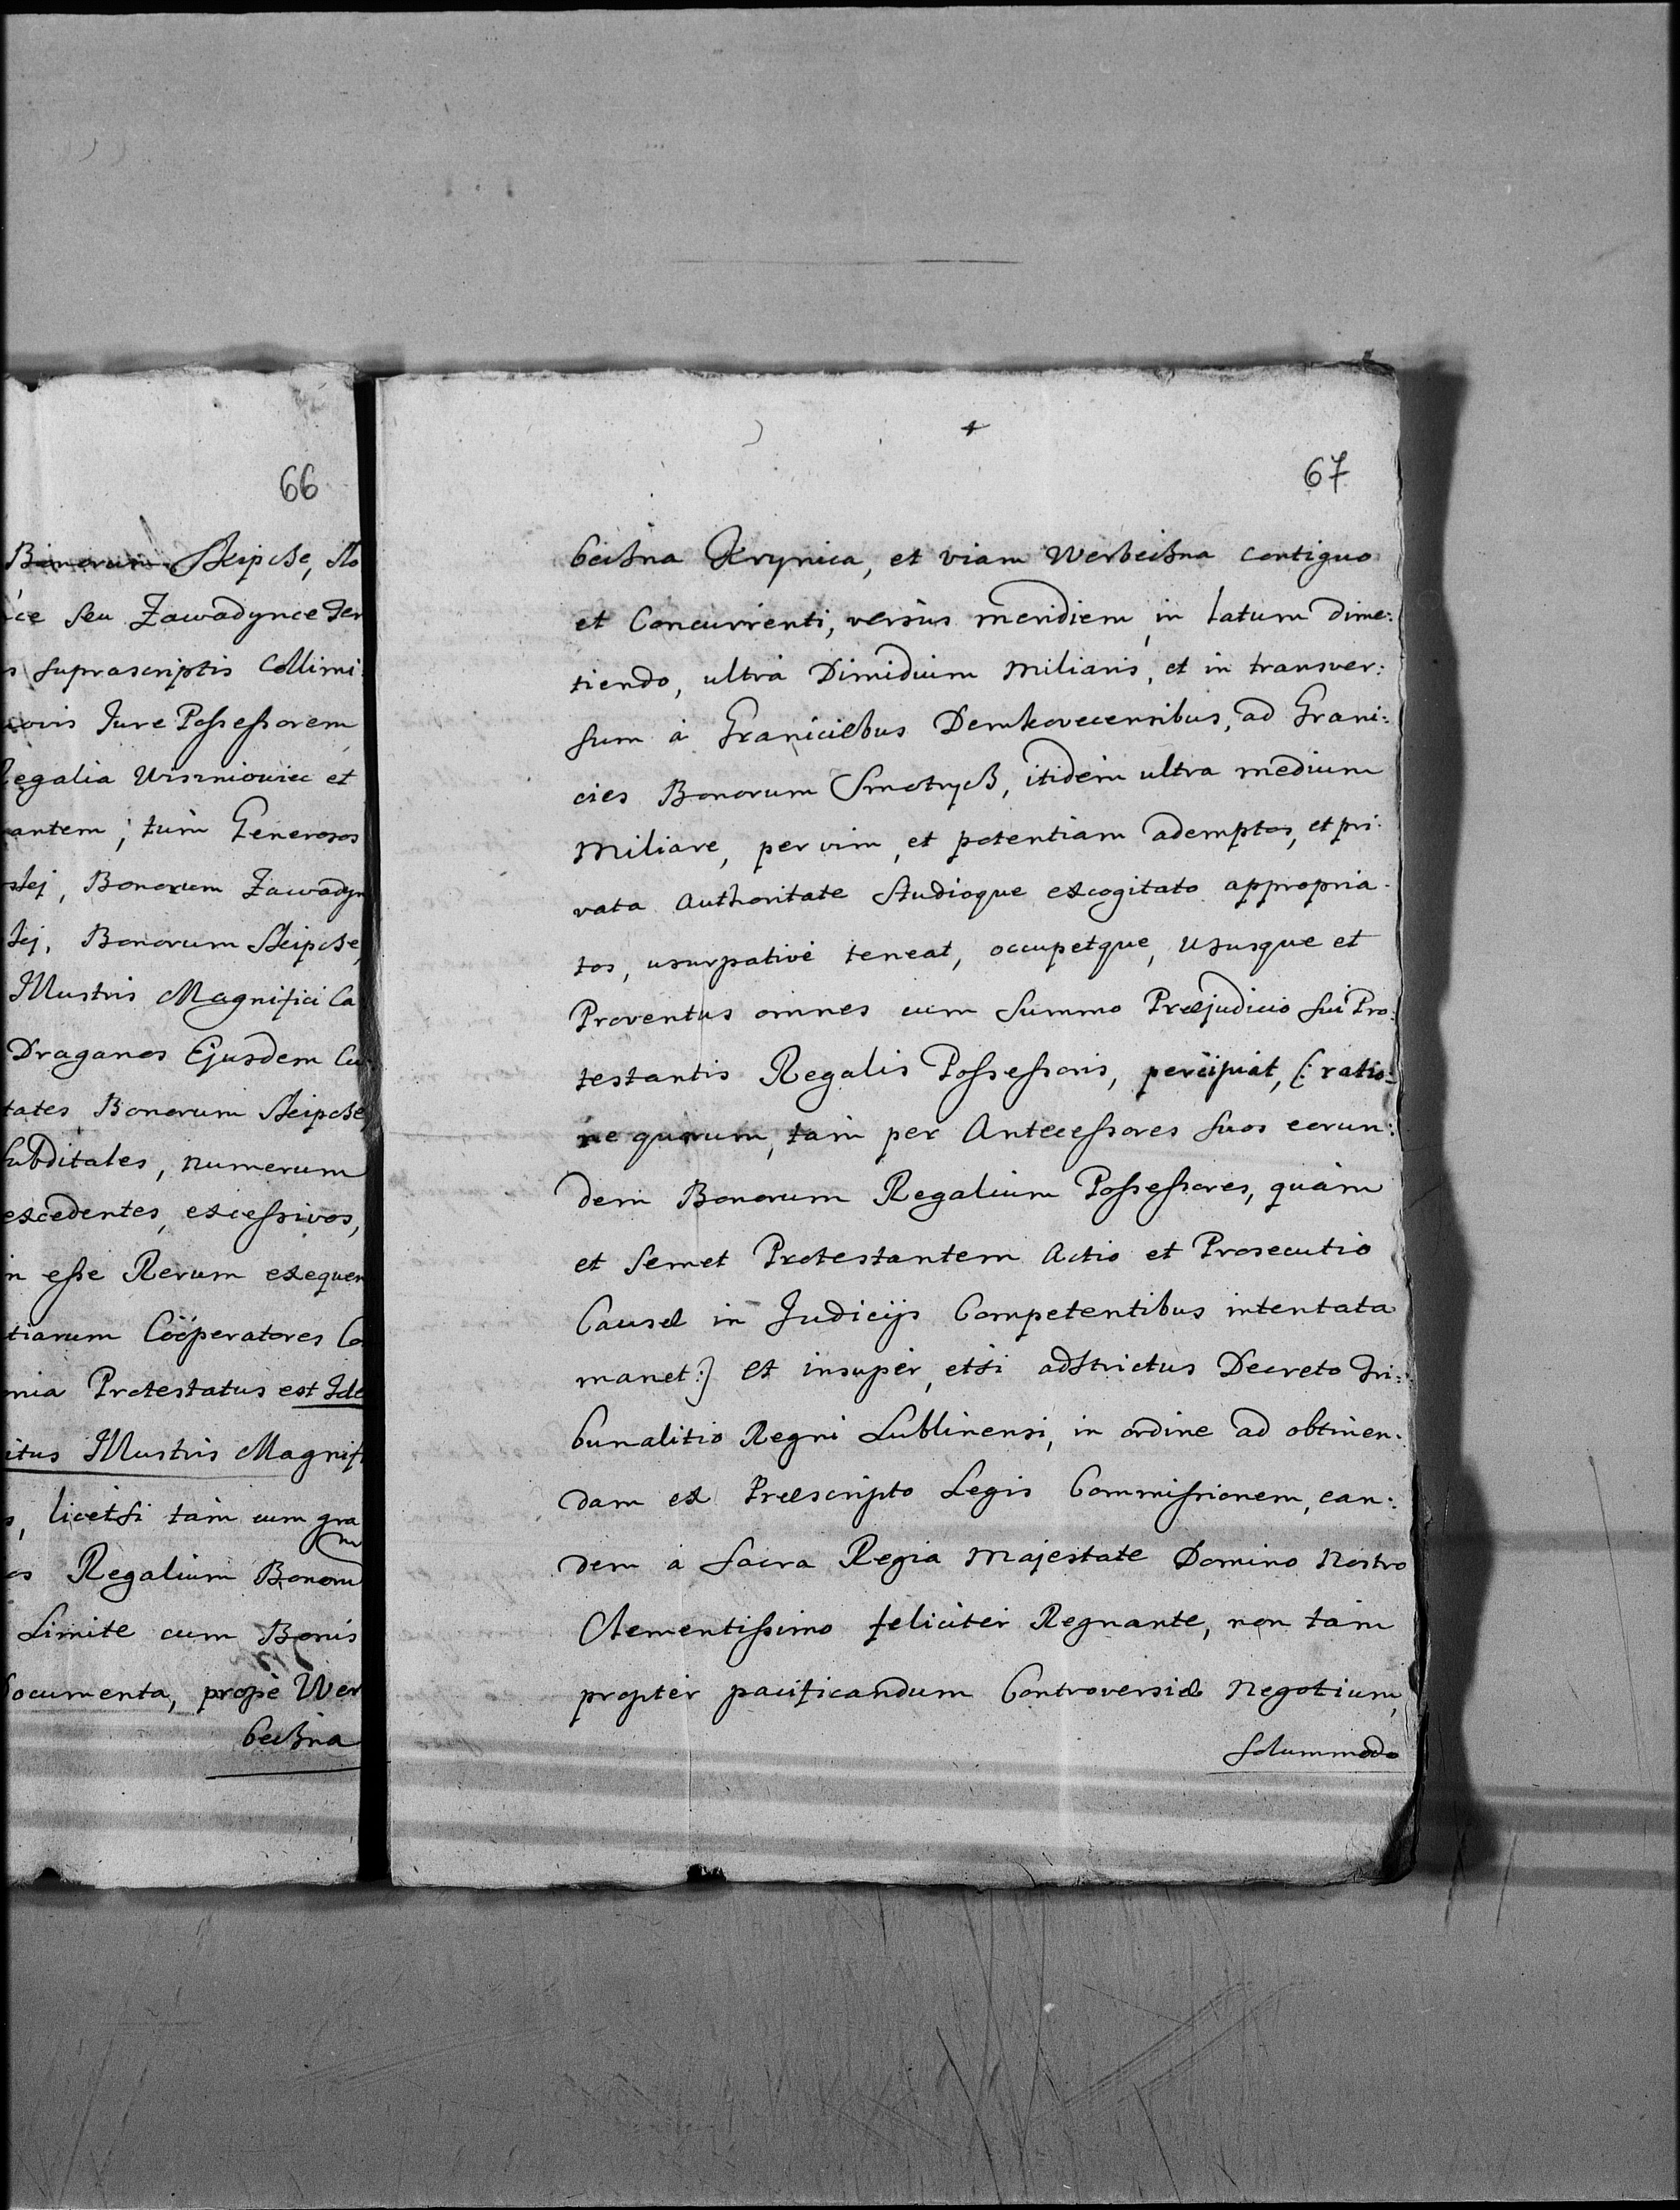 66
Bonorum Skipcze, Sło
ce seu Zawadynce Ter
s suprascriptis Collimi
Jure Possessorem
Regalia Wiszniowiec et
antem; tùm Generosos
skj, Bonorum Zawadyn
skj, Bonorum Skipcze,
Illustris Magnifici Ca
Draganos Ejusdem Cu
tates Bonorum Skipcze
Subditales, numerum
excedentes, excessivos,
n esse Rerum exequen
tiarum Coöperatores Co
nia Protestatus est Ide
itus Illustris Magnifi
s, licetsi tàm cum gra
os Regalium Bonoru
Limite cum Bonis
Documenta, propè Wer
bećzna
67
bećzna Krynica, et viam Werbećzna contiguo
et Concurrenti, versùs meridiem in latum dime:
tiendo, ultrà Dimidium Miliaris, et in transver:
sum à Graniciebus Demkovecensibus, ad Grani:
cies Bonorum Smotrycz, itidèm ultra medium
Miliare, per vim, et potentiam ademptos, et pri:
vata Authoritate Studioque excogitato appropria:
tos, usurpativè teneat, occupetque, Ususque et
Proventus omnes cum Summo Præjudicio sui Pro:
testantis Regalis Possessoris, percipiat, [: ratio:
ne quorum, tàm per Antecessores suos eorun:
dem Bonorum Regalium Possessores, quàm
et semet Protestantem Actio et Prosecutio
Causæ in Judicijs Competentibus intentata
manet:] et insupèr, etsi adstrictus Decreto Tri:
bunalitio Regni Lublinensi, in ordine ad obtinen:
dam ex Præscripto Legis Commissionem, ean:
dem à Sacra Regia Majestate Domino Nostro
Clementissimo felicitèr Regnante, non tàm
proptèr pacificandum Controversiæ Negotium,
solummodo